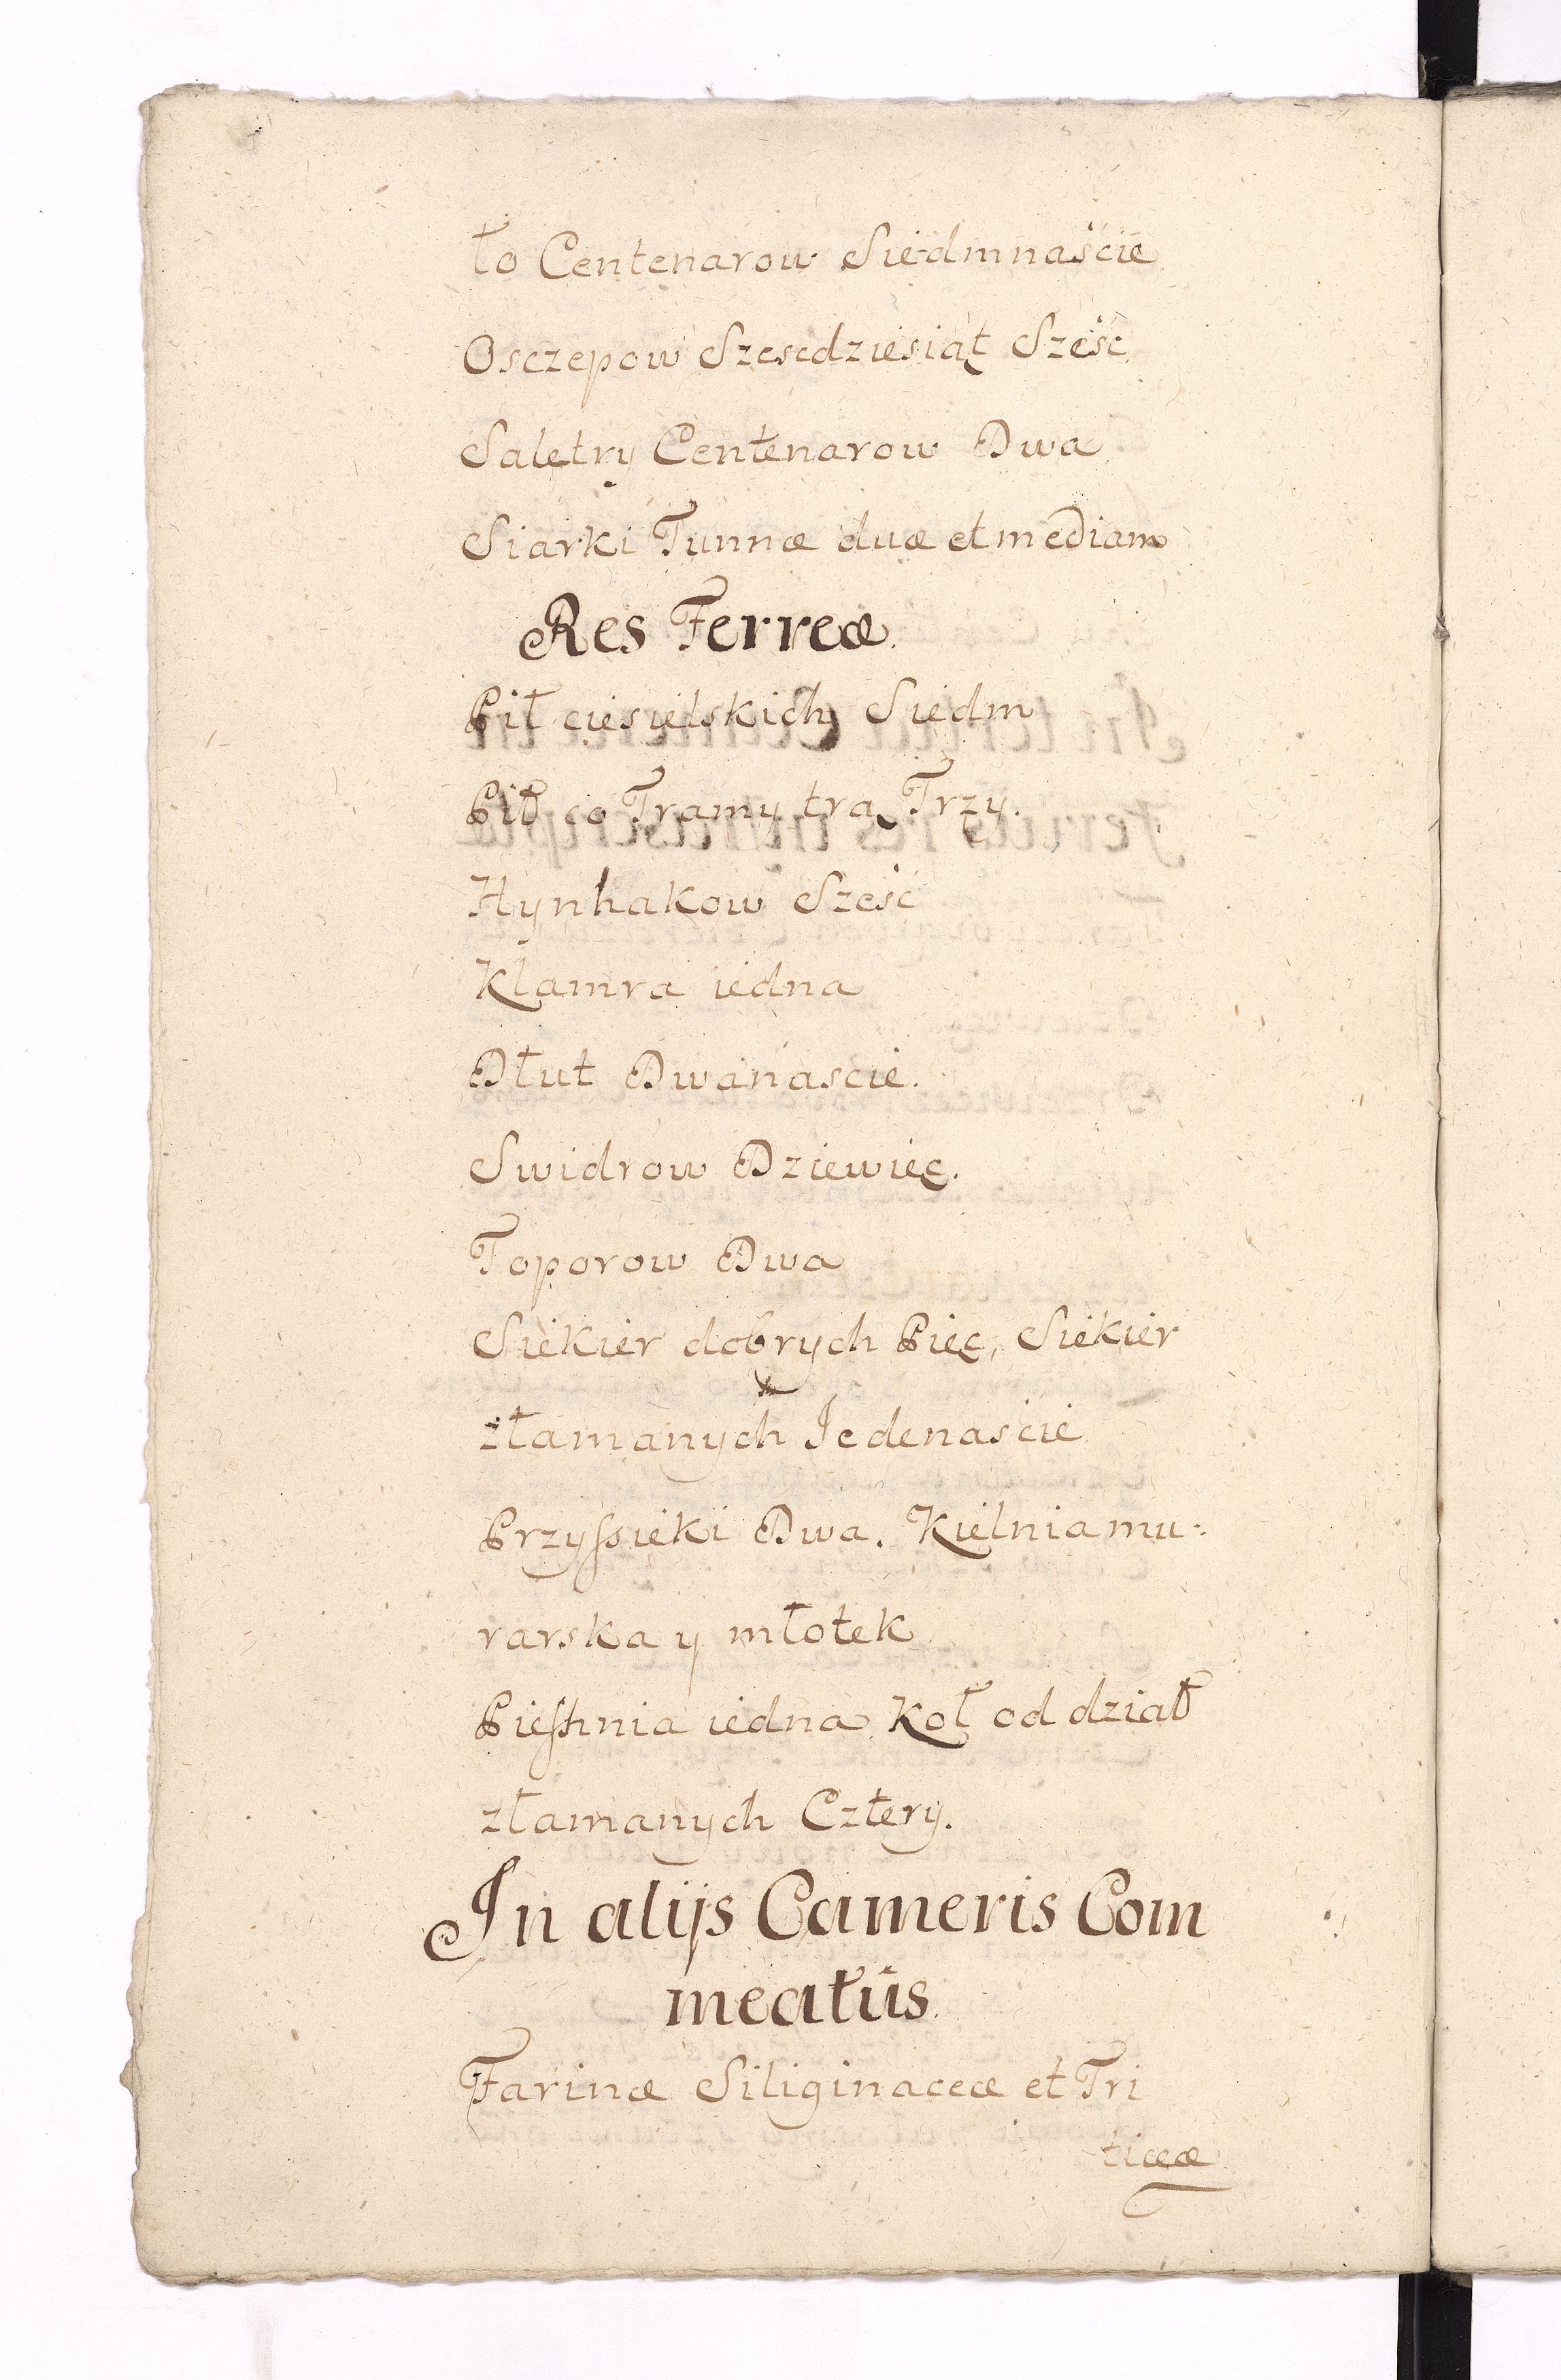 to Centenarow Siedmnaście
Osczepow Szescdziesiąt Sześc
Saletry Centenarow Dwa
Siarki Tunnæ duæ et mediam
Res Ferreæ.
Pił ciesielskich Siedm
Pił co Tramy trą Trzy.
Hynhakow Sześć
Klamra iedna
Dłut Dwanascie.
Swidrow Dziewięc.
Toporow Dwa
Siekier dobrych Pięc, Siekier
złamanych Jedenaście
Przyssieki Dwa. Kielnia mu:
rarska y młotek
Pieshnia iedna Koł od dział
złamanych Cztery.
In alijs Cameris Com
meatûs.
Farinæ Siliginaceæ et Tri
ticeæ